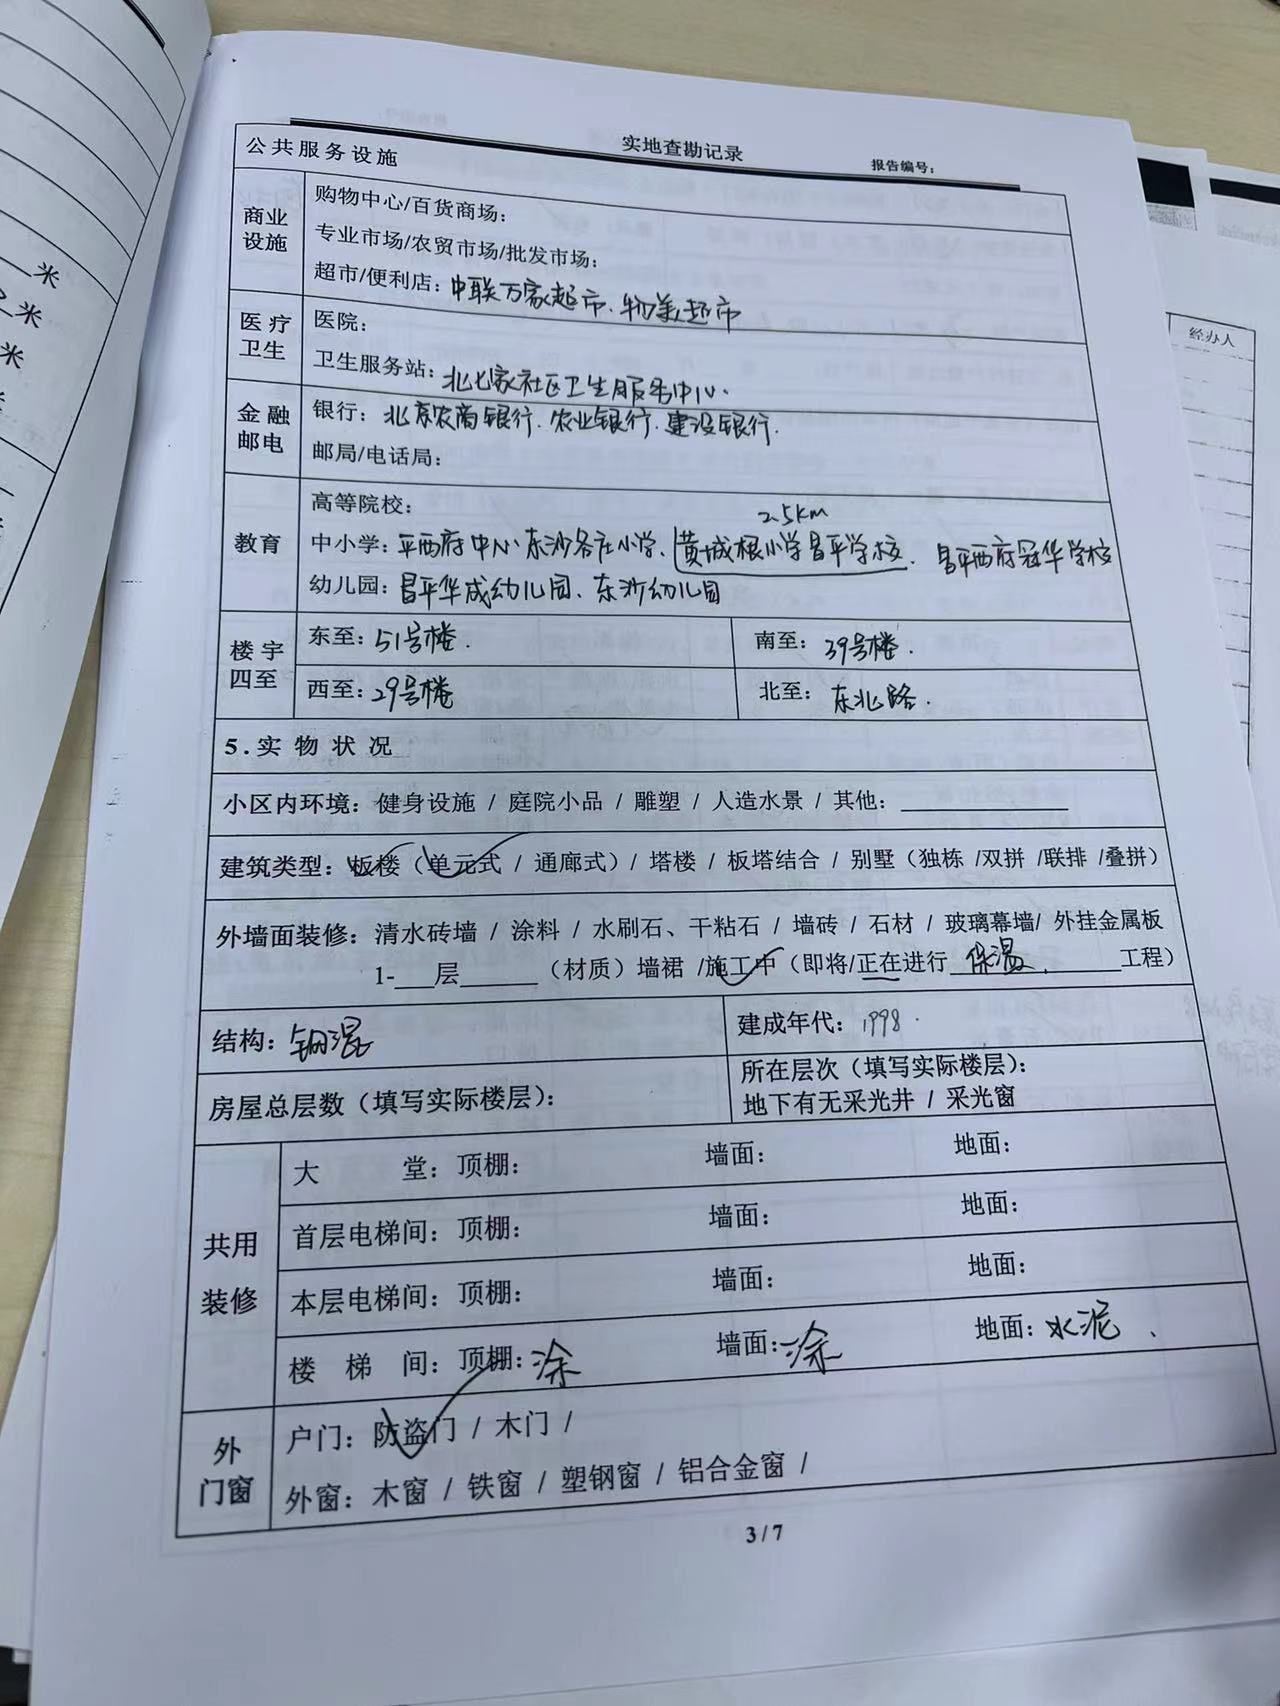 实地查勘记录
报告编号：
公共服务设施
商业设施
购物中心/百货商场：
专业市场/农贸市场/批发市场：
超市/便利店：中联万家超市、物美超市
医疗卫生
医院：
卫生服务站：北七家社区卫生服务中心.
金融邮电
银行：北京农商银行.农业银行.建设银行.
邮局/电话局：
教育
高等院校：
2.5km
中小学：平西府中心东沙各庄小学、黄城根小学昌平学校、昌平西府冠华学校
幼儿园：昌平华成幼儿园、东沙幼儿园
楼宇四至
东至：51号楼. 南至：39号楼.
西至：29号楼 北至：东北路.
5.实物状况
小区内环境：健身设施 / 庭院小品 / 雕塑 / 人造水景 / 其他：
建筑类型：板楼（单元式 / 通廊式）/ 塔楼 /板塔结合 / 别墅（独栋 /双拼 /联排 /叠拼）
外墙面装修：清水砖墙 / 涂料 / 水刷石、干粘石 / 墙砖 / 石材 / 玻璃幕墙/ 外挂金属板
1-___层______（材质）墙裙 /施工中（即将/正在进行 保温 工程）
结构：钢混 建成年代：1998.
房屋总层数（填写实际楼层）： 所在层次（填写实际楼层）：
地下有无采光井 / 采光窗
共用装修
大堂：顶棚： 墙面： 地面：
首层电梯间：顶棚： 墙面： 地面：
本层电梯间：顶棚： 墙面： 地面：
楼梯间：顶棚：涂 墙面：涂 地面：水泥、
外门窗
户门：防盗门 / 木门 /
外窗：木窗 / 铁窗 / 塑钢窗 / 铝合金窗 /
3/7
米
米
米
经办人